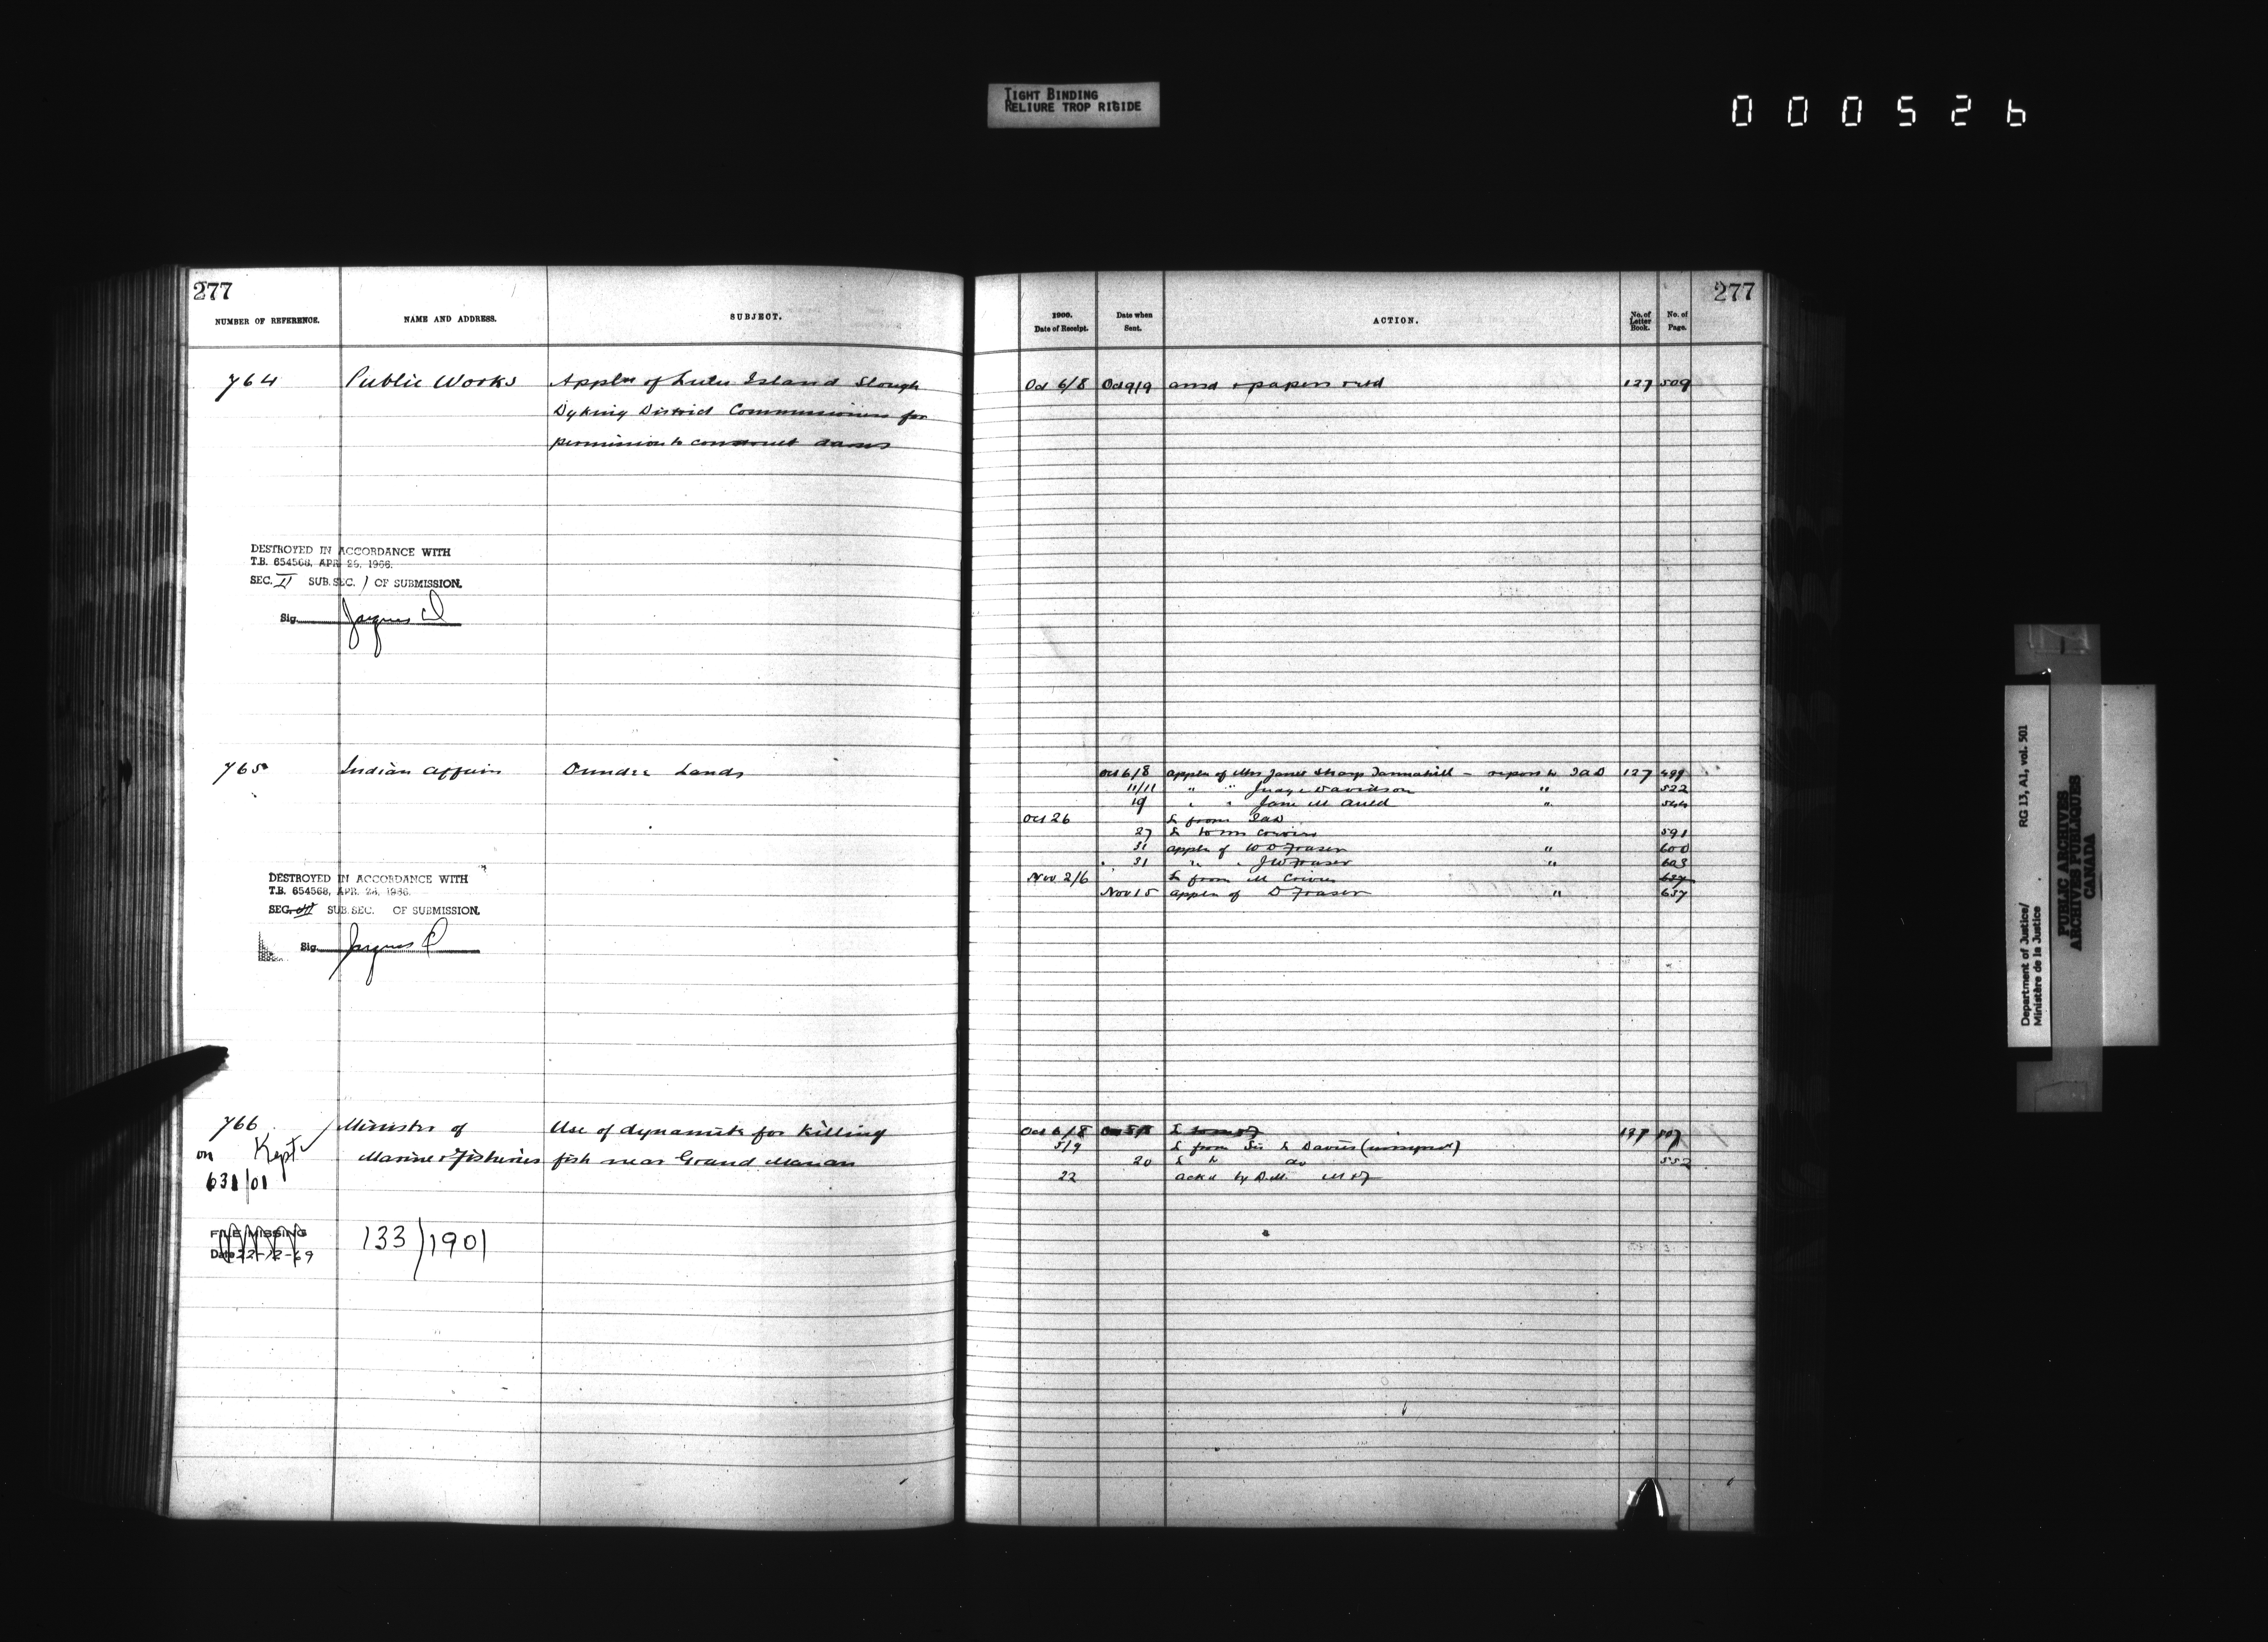 TIGHT BINDING
RELIURE TROP RIGIDE
000526
277
NUMBER OF REFERENCE. NAME AND ADDRESS. SUBJECT.
764 Public Works Appln of Lulu Island Slough
Dyking District Commissioners for
permission to construct dams
DESTROYED IN ACCORDANCE WITH
T.B. 654568, APR 26, 1966.
SEC. II SUB. SEC. 1 OF SUBMISSION.
Sig. Jacques
765 Indian Affairs Dundee Lands
DESTROYED IN ACCORDANCE WITH
T.B. 654568, APR. 26, 1966.
SEC. SUB. SEC. OF SUBMISSION.
Sig. Jacques
766 Minister of Use of dynamite for killing
on Kept Marine & Fisheries fish near Grand Manan
631/01
FILE MISSING 133/1901
Date 22-12-69
277
1900. Date of Receipt. Date when Sent. ACTION. No. of Letter Book. No. of Page.
Oct 6/8 Oct 9/9 ansd & papers retd 127 509
Oct 6/8 appln of Mrs Janet Sharp Tannahill - report to IAD 127 499
11/11 " " Judge Davidson " 522
19 " " Jane M Auld " 544
Oct 26 L from IAD
27 L to 591
31 appln of W D Fraser " 600
31 " " J W Fraser " 603
Nov 2/6 L from M
Nov 15 appln of D Fraser " 637
Oct 6/8 127 507
5/9 L from Sir L Davies (unsigned)
20 L to do 552
22 ackd by D.M. M & F
RG 13, A1, vol. 501
Department of Justice/
Ministère de la Justice
PUBLIC ARCHIVES
ARCHIVES PUBLIQUES
CANADA